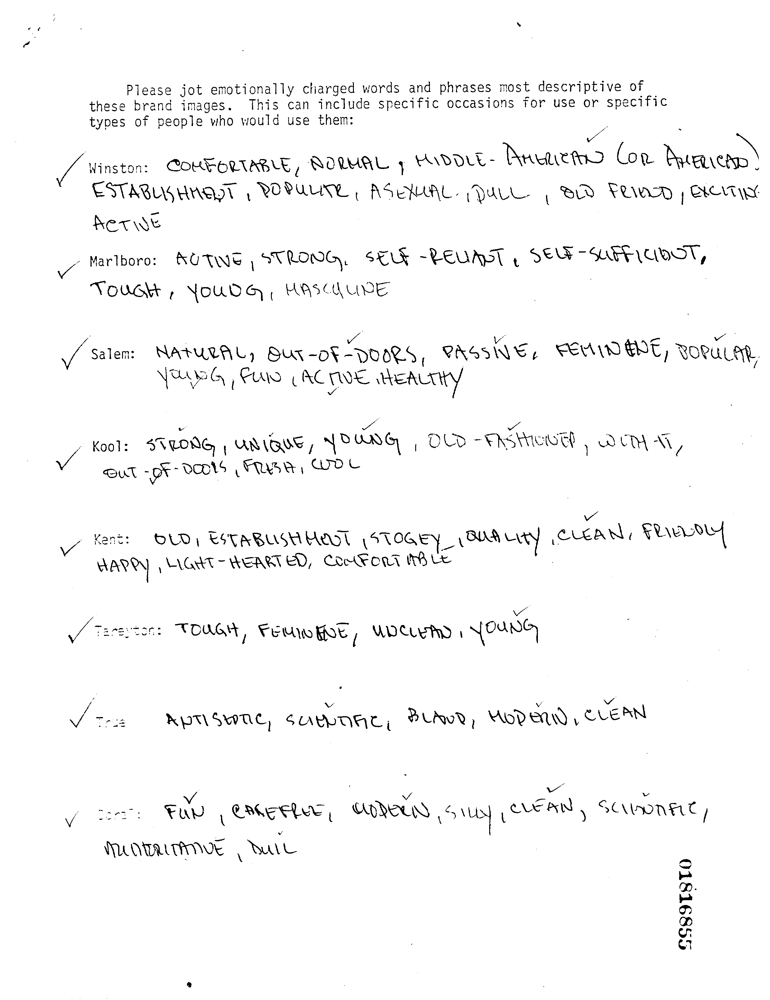 Please jot emotionally charged words and phrases most descriptive of
these brand images. This can include specific occasions for use or specific
types of people who would use them:
Winston: COMFORTABLE, NORMAL, MIDDLE-AMERICAN (OR AMERICAN)
ESTABLISHMENT, POPULAR, ASEXUAL, DULL, OLD FRIEND, EXCITING
ACTIVE
Marlboro: ACTIVE, STRONG, SELF-RELIANT, SELF-SUFFICIENT,
TOUGH, YOUNG, MASCULINE
Salem: NATURAL, OUT-OF-DOORS, PASSIVE, FEMININE, POPULAR,
YOUNG, FUN, ACTIVE, HEALTHY
Kool: STRONG, UNIQUE, YOUNG, OLD-FASHIONED, WITH-IT,
OUT-OF-DOORS, FRESH, COOL
Kent: OLD, ESTABLISHMENT, STOGEY, QUALITY, CLEAN, FRIENDLY
HAPPY, LIGHT-HEARTED, COMFORTABLE
Tareyton: TOUGH, FEMININE, UNCLEAN, YOUNG
True ANTISEPTIC, SCIENTIFIC, BLAND, MODERN, CLEAN
FUN, CAREFREE, MODERN, SILLY, CLEAN, SCIENTIFIC,
AUTHORITATIVE, DULL
01816855